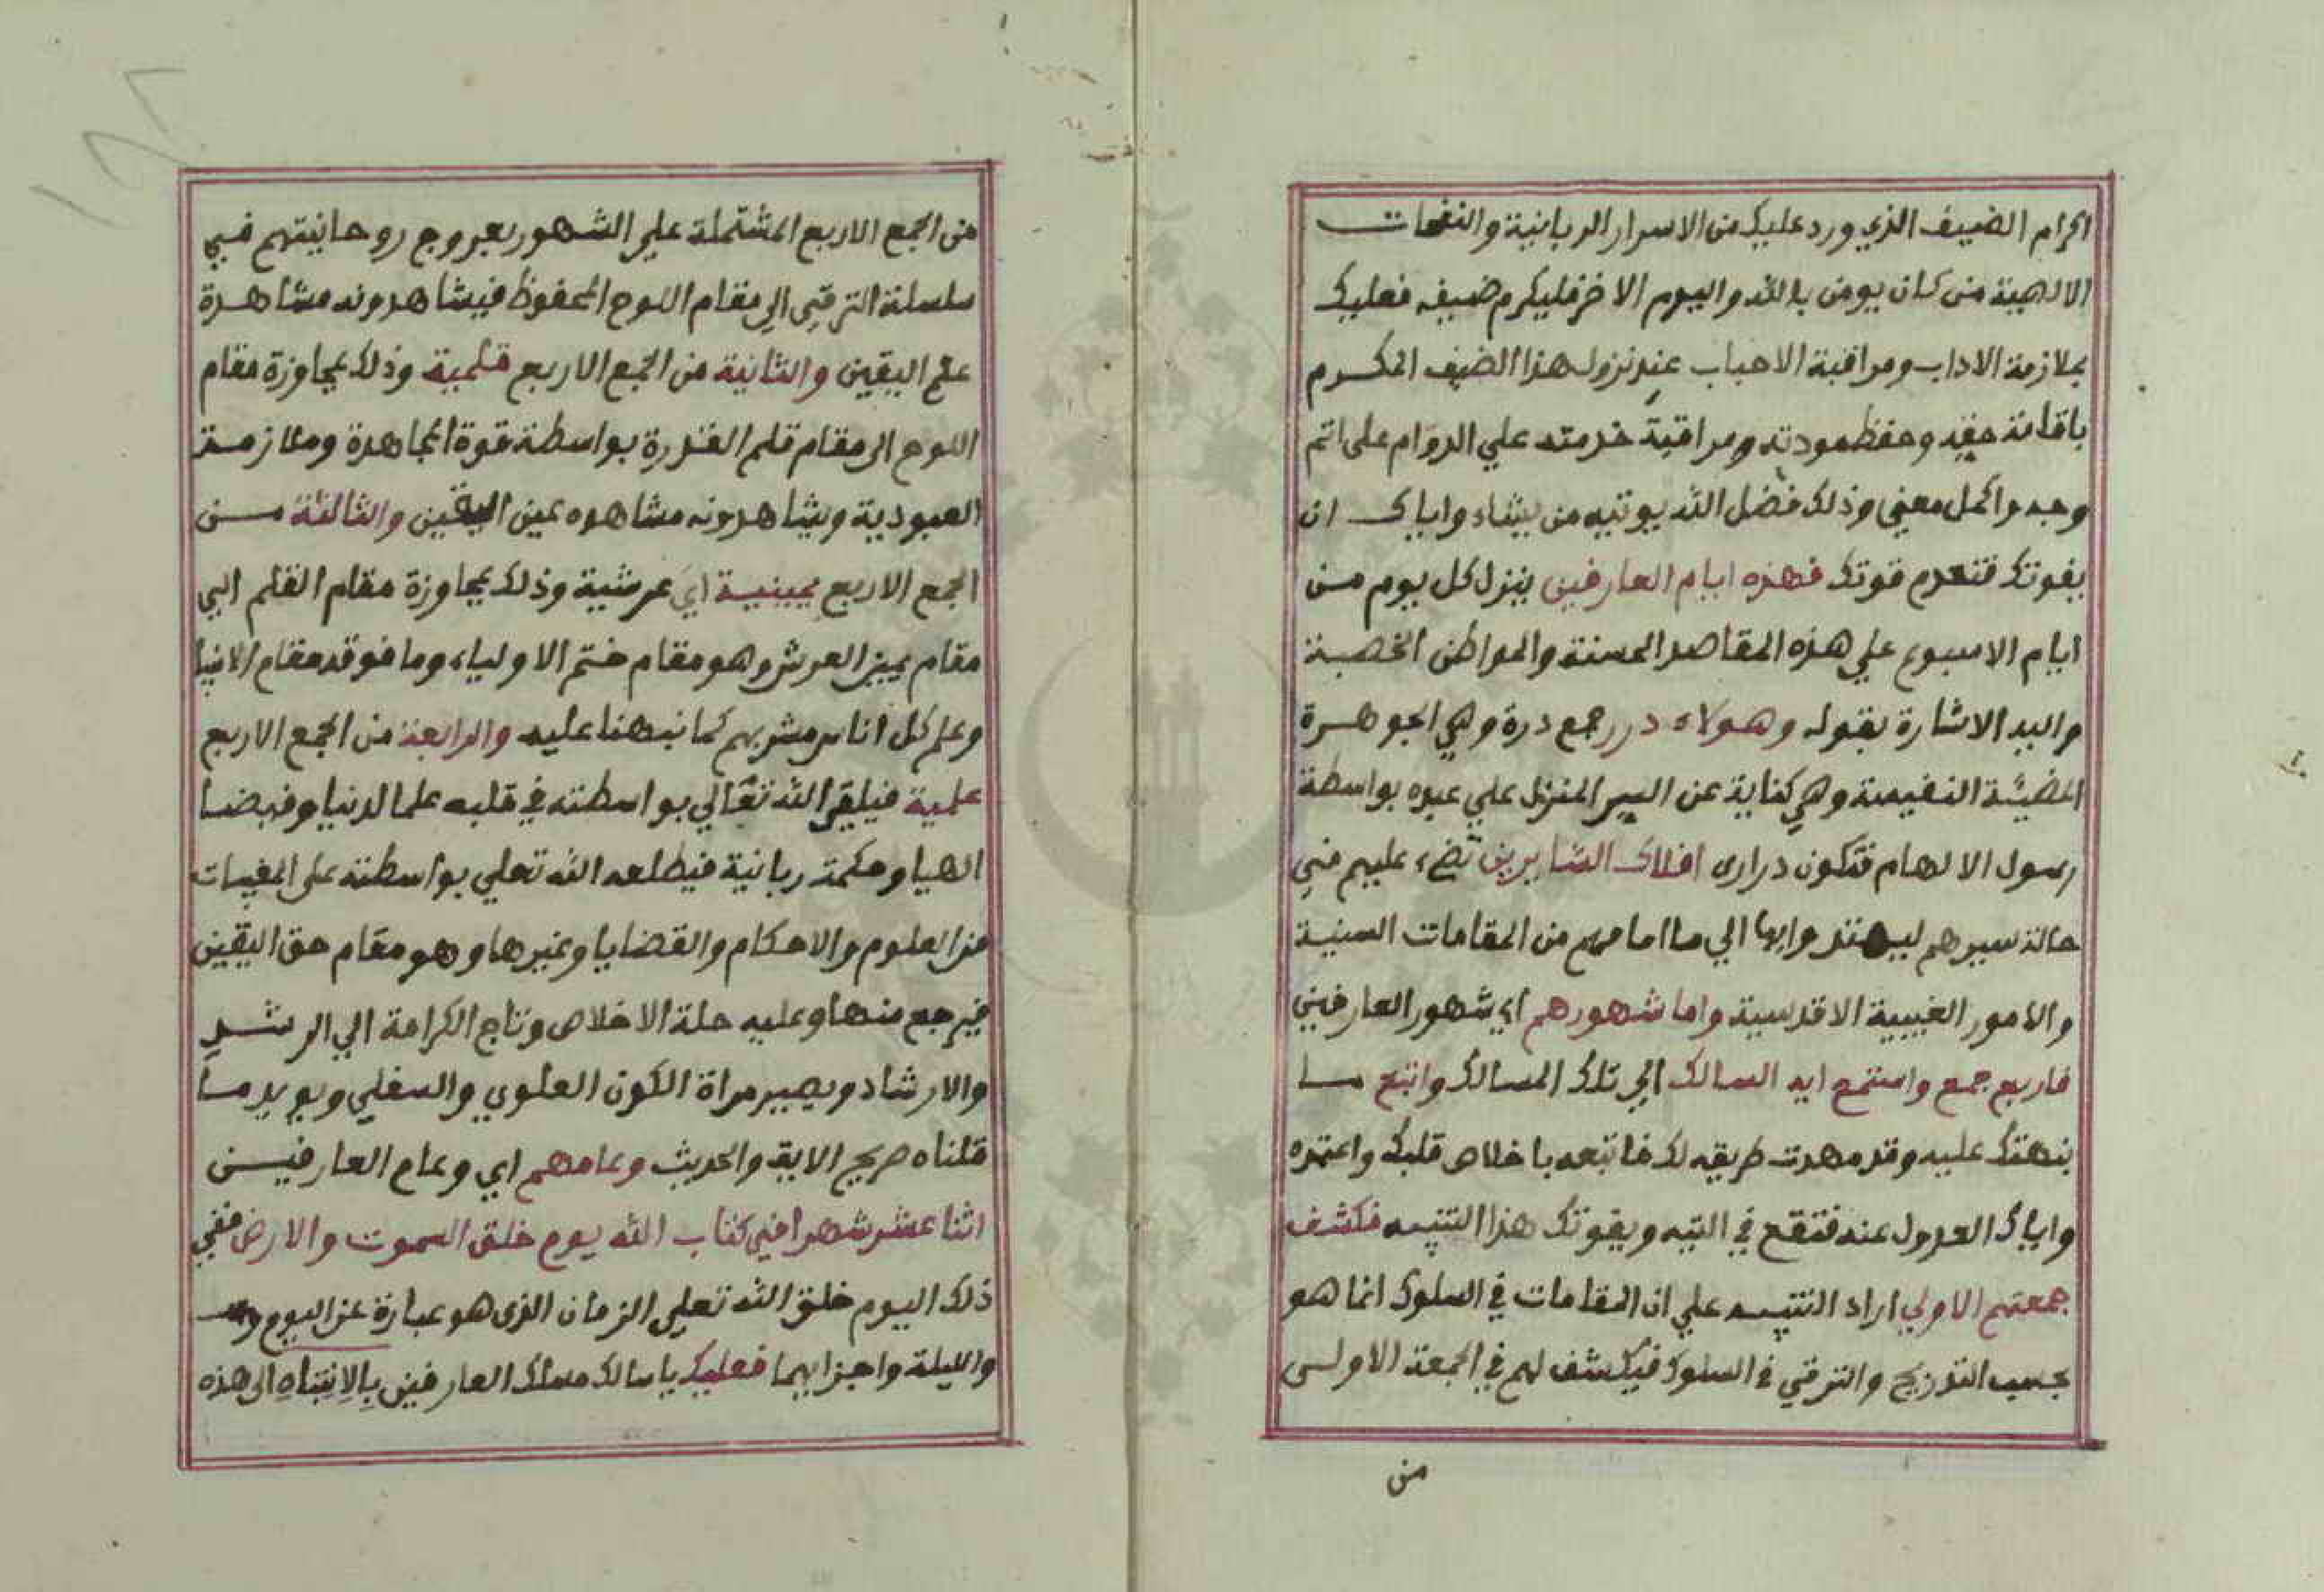 اكرام الضيف الذي ورد عليك من الاسرار الربانية والنفحات
الالهية من كان يومن بالله واليوم الاخر فليكرم ضيفه فعليك
بملازمة الاداب ومراقبة الاحباب عند نزول هذا الضيف المكرم
باقامة حقه وحفظ مودته ومراقبة خدمته علي الدوام على اتم
وجه واكمل معني وذلك فضل الله يوتيه من يشاء واياك ان
يفوتك فتعدم قوتك فهذه ايام العارفين ينزل كل يوم من
ايام الاسبوع علي هذه المقاصد الحسنة والمواطن الخصبة
واليه الاشارة بقوله وهولاء درر جمع درة وهي الجوهرة
المضيئة النفيسة وهي كناية عن السر المنزل علي عبده بواسطة
رسول الالهام فتكون دراري افلاك السايرين تضيء عليهم في
حالة سيرهم ليهتدوا بها الي ما امامهم من المقامات السنية
والامور الغيبية الاقدسية واما شهورهم اي شهور العارفين
فاربع جمع واستمع ايه السالك الي تلك المسالك واتبع ما
نبهتك عليه وقد مهدت طريقه لك فاتبعه باخلاص قلبك واعتمده
واياك العدول عنه فتقع في التيه ويفوتك هذا التنبيه فكشف
جمعتهم الاولي اراد التنبيه علي ان المقامات في السلوك انما هو
بحسب التدريج والترقي في السلوك فيكشف لهم في الجمعة الاولى
من
من الجمع الاربع المشتملة علي الشهور بعروج روحانيتهم في
سلسلة الترقي الي مقام اللوح المحفوظ فيشاهدونه مشاهدة
علم اليقين والثانية من الجمع الاربع قلمية وذلك بمجاوزة مقام
اللوح الى مقام قلم القدرة بواسطة قوة المجاهدة وملازمة
العبودية ويشاهدونه مشاهده عين اليقين والثالثة من
الجمع الاربع يمينية اي عرشية وذلك بمجاوزة مقام القلم الي
مقام يمين العرش وهو مقام ختم الاولياء وما فوقه مقام الانبيا
وعلم كل اناس مشربهم كما نبهنا عليه والرابعة من الجمع الاربع
علمية فيلقي الله تعالي بواسطته في قلبه علما لدنيا وفيضا
الهيا وحكمة ربانية فيطلعه الله تعلي بواسطته على المغيبات
من العلوم والاحكام والقضايا وغيرها وهو مقام حق اليقين
فيرجع منها وعليه حلة الاخلاص وتاج الكرامة الي الرشد
والارشاد ويصير مراة الكون العلوي والسفلي ويويد ما
قلناه صريح الاية والحديث وعامهم اي وعام العارفين
اثنا عشر شهرا في كتاب الله يوم خلق السموت والارض ففي
ذلك اليوم خلق الله تعلي الزمان الذى هو عبارة عن اليوم
والليلة واجزايهما فعليك يا سالك مسلك العارفين بالانتباه الى هذه